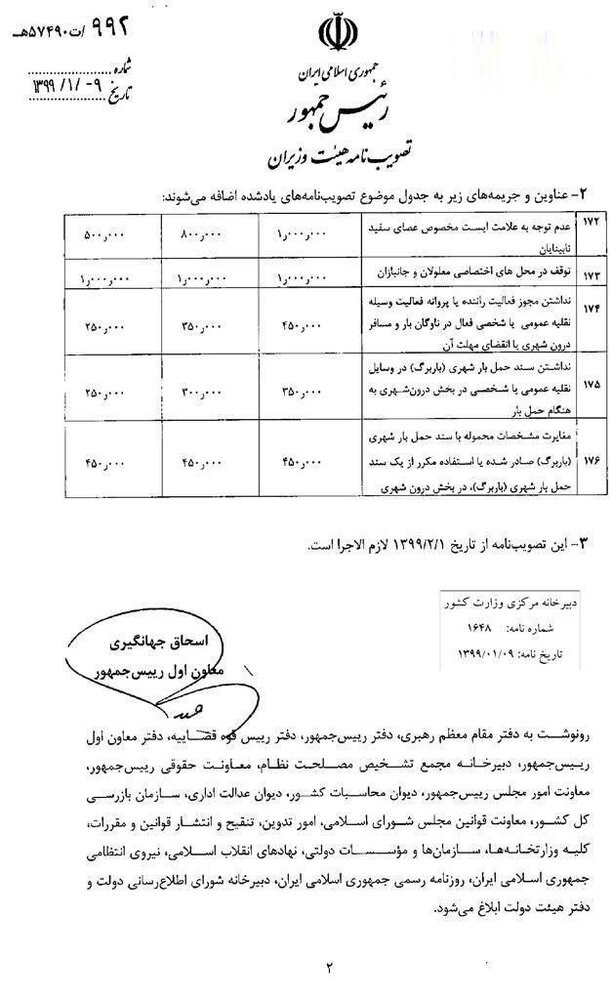 ۹۹۲/ت۵۷۴۹۰هـ
شماره
۱۳۹۹/۱/-۹
تاریخ
جمهوری اسلامی ایران
رئیس جمهور
تصویب نامه هیئت وزیران
۲- عناوین و جریمه‌های زیر به جدول موضوع تصویب‌نامه‌های یادشده اضافه می‌شوند:
۱۷۲ عدم توجه به علامت ایست مخصوص عصای سفید ۱٫۰۰۰٫۰۰۰ ۸۰۰٫۰۰۰ ۵۰۰٫۰۰۰
نابینایان
۱۷۳ توقف در محل های اختصاصی معلولان و جانبازان ۱٫۰۰۰٫۰۰۰ ۱٫۰۰۰٫۰۰۰ ۱٫۰۰۰٫۰۰۰
نداشتن مجوز فعالیت راننده یا پروانه فعالیت وسیله
۱۷۴ نقلیه عمومی یا شخصی فعال در ناوگان بار و مسافر ۴۵۰٫۰۰۰ ۳۵۰٫۰۰۰ ۲۵۰٫۰۰۰
درون شهری یا انقضای مهلت آن
نداشتن سند حمل بار شهری (باربرگ) در وسایل
۱۷۵ نقلیه عمومی یا شخصی در بخش درون‌شهری به ۳۵۰٫۰۰۰ ۳۰۰٫۰۰۰ ۲۵۰٫۰۰۰
هنگام حمل بار
مغایرت مشخصات محموله با سند حمل بار شهری
۱۷۶ (باربرگ) صادر شده یا استفاده مکرر از یک سند ۴۵۰٫۰۰۰ ۴۵۰٫۰۰۰ ۴۵۰٫۰۰۰
حمل بار شهری (باربرگ)، در بخش درون شهری
۳- این تصویب‌نامه از تاریخ ۱۳۹۹/۲/۱ لازم الاجرا است.
دبیرخانه مرکزی وزارت کشور
شماره نامه: ۱۶۴۸
تاریخ نامه: ۱۳۹۹/۰۱/۰۹
اسحاق جهانگیری
معاون اول رییس‌جمهور
رونوشت به دفتر مقام معظم رهبری، دفتر رییس‌جمهور، دفتر رییس قوه قضاییه، دفتر معاون اول
رییس‌جمهور، دبیرخانه مجمع تشخیص مصلحت نظام، معاونت حقوقی رییس‌جمهور،
معاونت امور مجلس رییس‌جمهور، دیوان محاسبات کشور، دیوان عدالت اداری، سازمان بازرسی
کل کشور، معاونت قوانین مجلس شورای اسلامی، امور تدوین، تنقیح و انتشار قوانین و مقررات،
کلیه وزارتخانه‌ها، سازمان‌ها و مؤسسات دولتی، نهادهای انقلاب اسلامی، نیروی انتظامی
جمهوری اسلامی ایران، روزنامه رسمی جمهوری اسلامی ایران، دبیرخانه شورای اطلاع‌رسانی دولت و
دفتر هیئت دولت ابلاغ می‌شود.
۲